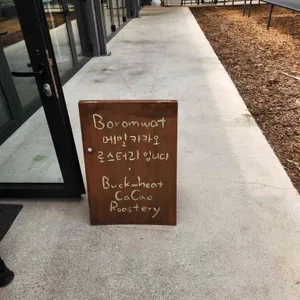 Boromwat
메밀카카오
로스터리입니다
Buckwheat
CaCao
Roastery